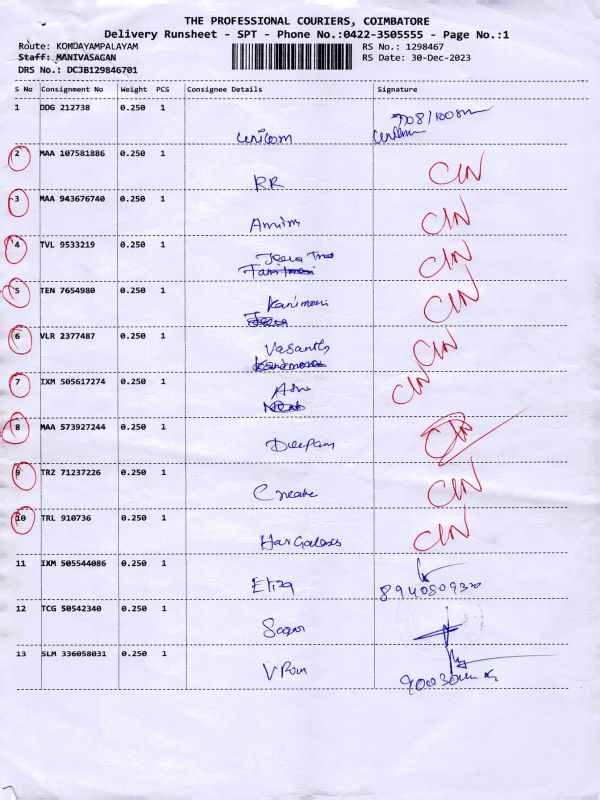 THE PROFESSIONAL COURIERS, COIMBATORE
Delivery Runsheet - SPT - Phone No.:0422-3505555 - Page No.:1
Route: KONDAYAMPALAYAM RS No.: 1298467
Staff: MANIVASAGAN RS Date: 30-Dec-2023
DRS No.: DCJB129846701
S No Consignment No Weight PCS Consignee Details Signature
1 DDG 212738 0.250 1
Unicom
2 MAA 107581886 0.250 1
RR CIN
3 MAA 943676740 0.250 1
CIN
4 TVL 9533219 0.250 1
CIN
5 TEN 7654980 0.250 1
Kanimozi CIN
6 VLR 2377487 0.250 1
Vasanth CIN
7 IXM 505617274 0.250 1
CIN
8 MAA 573927244 0.250 1
Deepam CIN
9 TRZ 71237226 0.250 1
Create CIN
10 TRL 910736 0.250 1
CIN
11 IXM 505544086 0.250 1
12 TCG 50542340 0.250 1
13 SLM 336058031 0.250 1